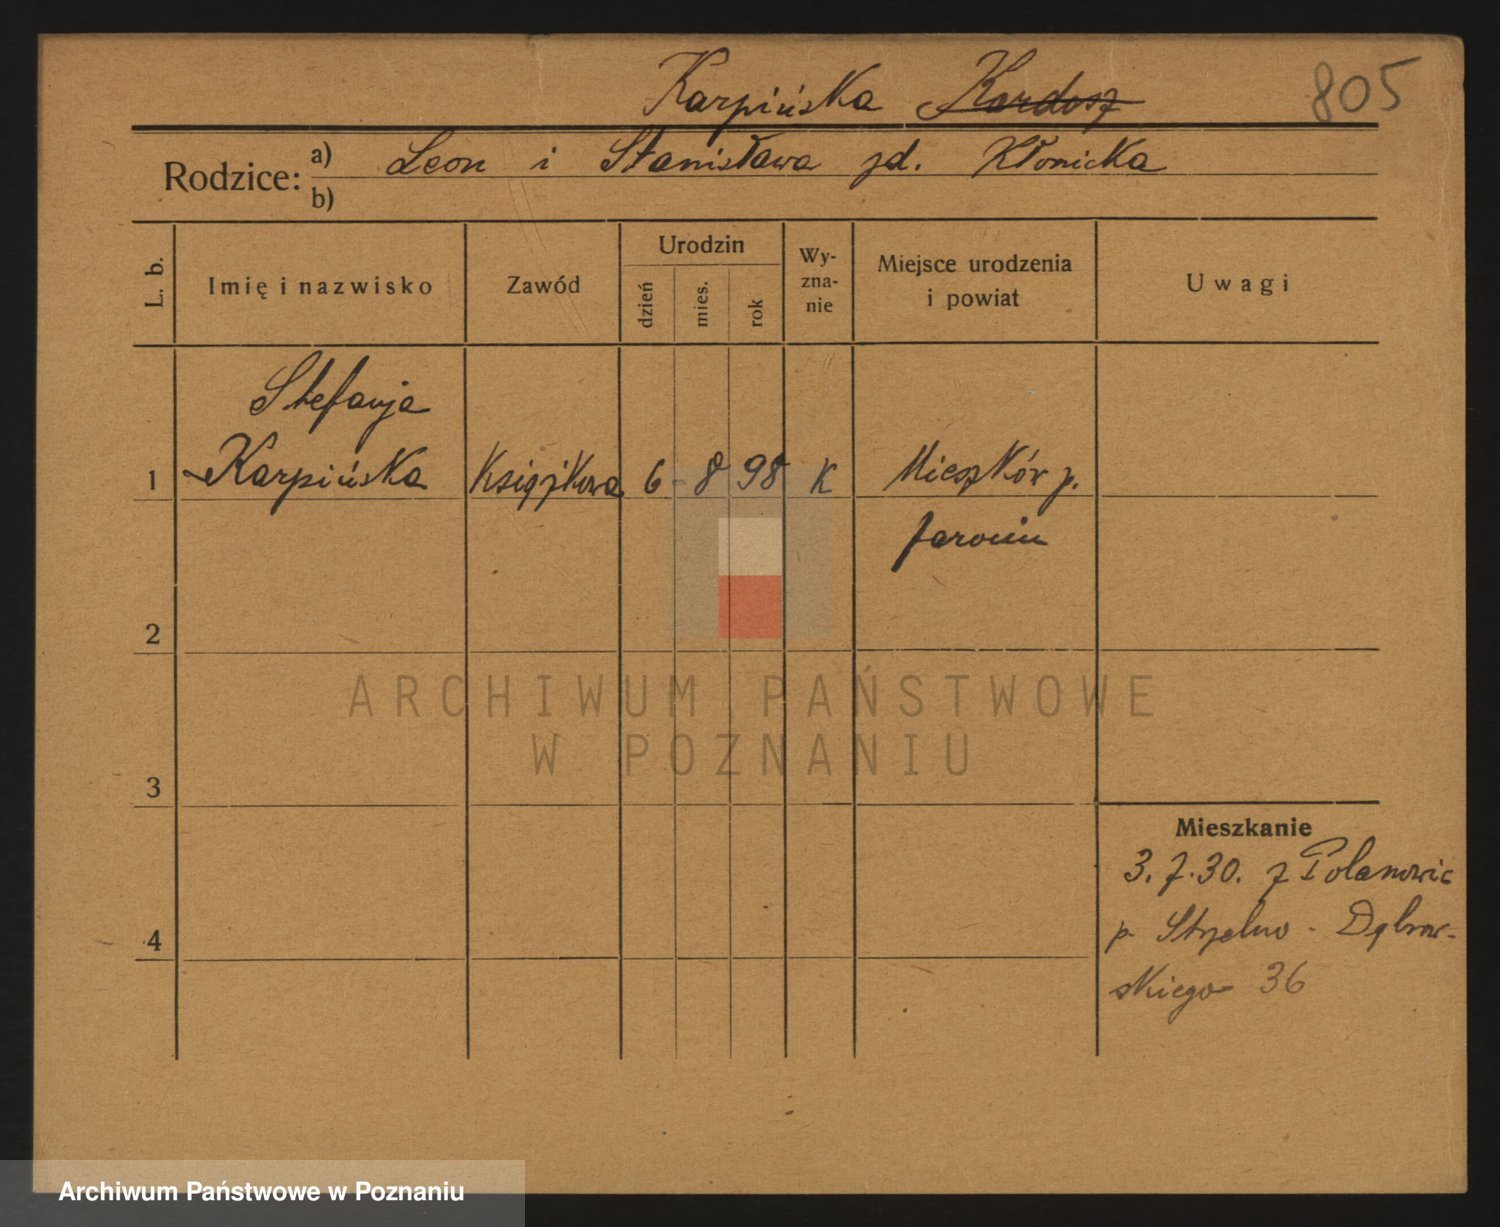 Karpińska Kardosz 805
Rodzice: a) Leon i Stanisława zd. Kłonicka
b)
L. b. Imię i nazwisko Zawód Urodzin dzień mies. rok Wy-zna-nie Miejsce urodzenia i powiat Uwagi
Stefanja
1 Karpińska Książkowa 6 - 8 98 K Mieszków p.
Jarocin
2
3
Mieszkanie
3.7.30. z Polanowic
p Strzelno - Dąbrow-
4
skiego 36
ARCHIWUM PAŃSTWOWE
W POZNANIU
Archiwum Państwowe w Poznaniu